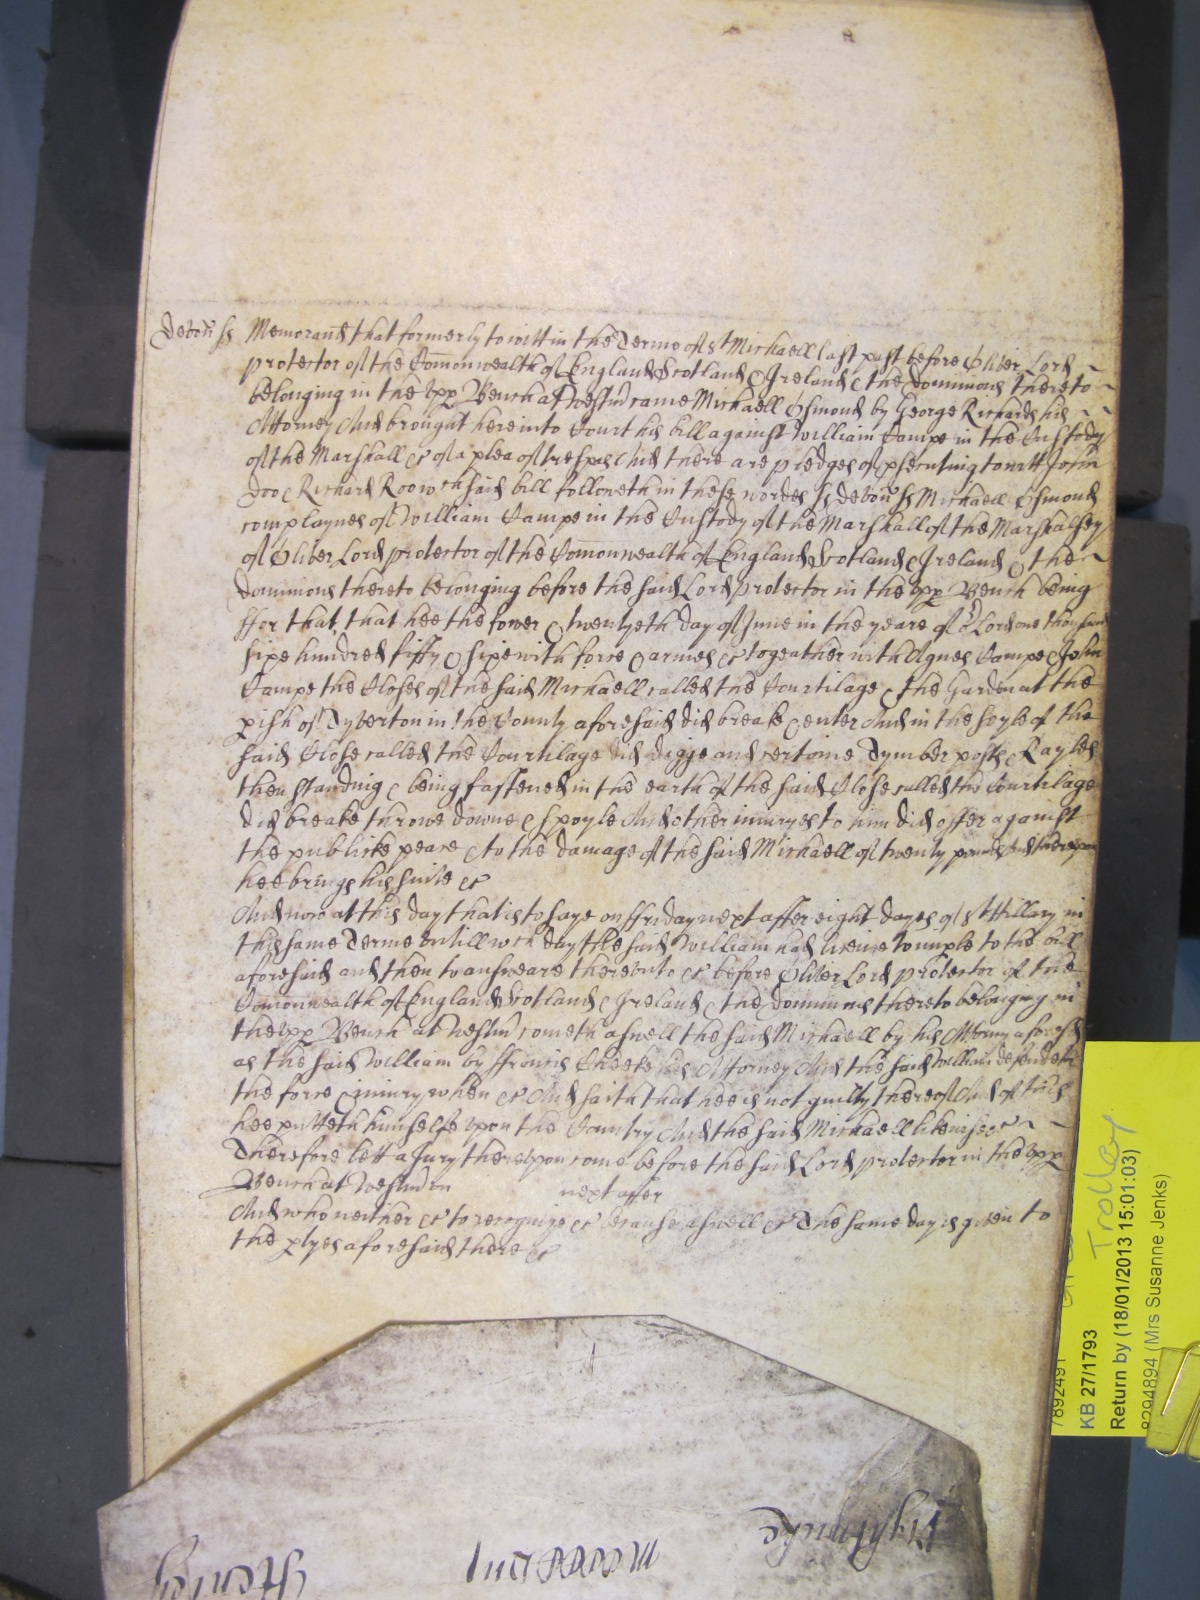 Devon ss Memorand that formerly to witt in the Terme of St Michaell last past before Oliver Lord
protector of the Comonwealth of England Scotland & Ireland & the dominions thereto
belonging in the upp Bench at Westm came Michaell Osmond by George Richards his
Attorney And brought here into Court his bill against William Campe in the Custody
of the Marshall &c of a plea of trespas And there are pledges of psecuting to witt John
Doo & Richard Roo wch said bill followeth in these wordes ss devon ss Michaell Osmond
complaynes of William Campe in the Custody of the Marshall of the Marshalsey
of Oliver Lord protector of the Comonwealth of England Scotland & Ireland & the
dominions thereto belonging before the said Lord protector in the upp Bench being
ffor that, that hee the fower & twentyeth day of June in the yeare of or Lord one thousand
sixe hundred fifty & sixe with force & armes &c togeather with Agnes Campe & John
Campe the Closes of the said Michaell called the Courtilage & the Garden at the
pish of Tyverton in the County aforesaid did breake & enter And in the soyle of the
said Close called the Courtilage did digge and certaine Tymber posts & Rayles
then standing & being fastened in the earth of the said Close called the Courtilage
did breake throwe downe & spoyle And other injuryes to him did offer against
the publicke peace & to the damage of the said Michaell of twenty pounds And thereupon
hee brings his suite &c
And now at this day that is to saye on ffriday next after eight dayes of St Hillary in
this same Terme untill wch day the said William had licence to imple to the bill
aforesaid and then to answeare thereunto &c before Oliver Lord protector of the
Comonwealth of England Scotland & Ireland & the dominions thereto belonging in
the upp Bench at Westm cometh aswell the said Michaell by his Attorny aforesd
as the said William by ffrancis Cheeke his Attorney And the said William defendeth
the force & injury when &c And saith that hee is not guilty thereof And of this
hee putteth himselfe upon the Country And the said Michaell likewise &c
Therefore lett a Jury thereupon come before the said Lord protector in the upp
Bench at Westm on next after
And who neither &c to recognize &c because aswell &c The same day is given to
the ptyes aforesaid there &c
KB 27/1793
Trolley
Return by (18/01/2013 15:01:03)
8294894 (Mrs Susanne Jenks)
7892491